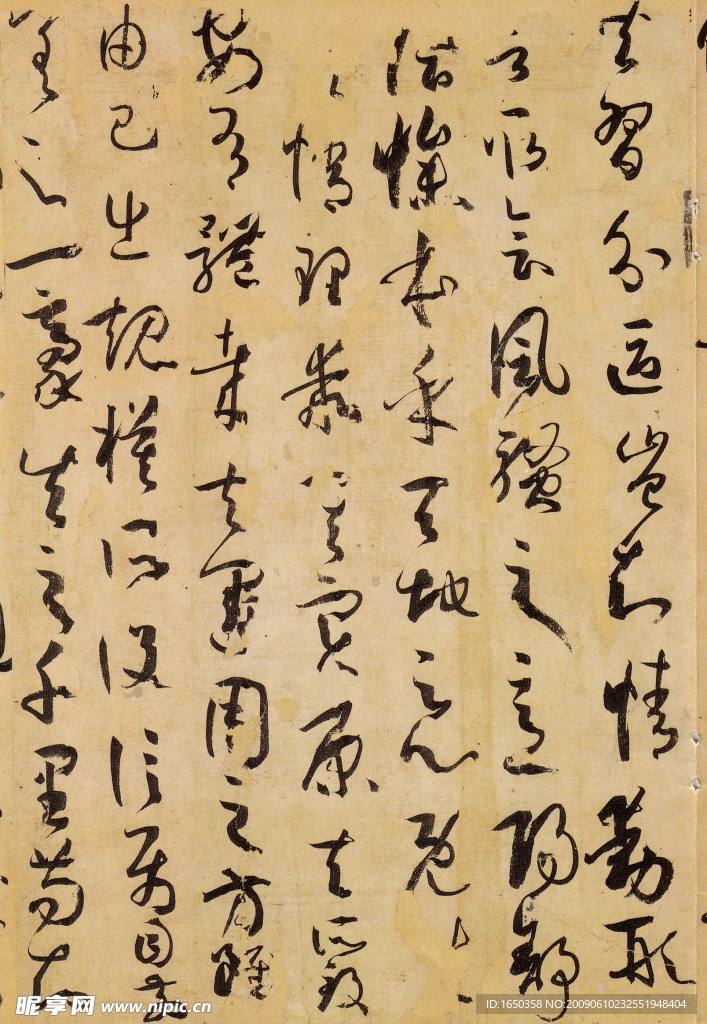 共習分區豈知情動形
言取會風騷之意陽舒
陰慘本乎天地之心既
情理乖其實原夫所致
安有體哉夫運用之方雖
由己出規模所設信屬目前
差之一豪失之千里苟知
昵享网 www.nipic.cn
ID:1650358 NO:20090610232551948404